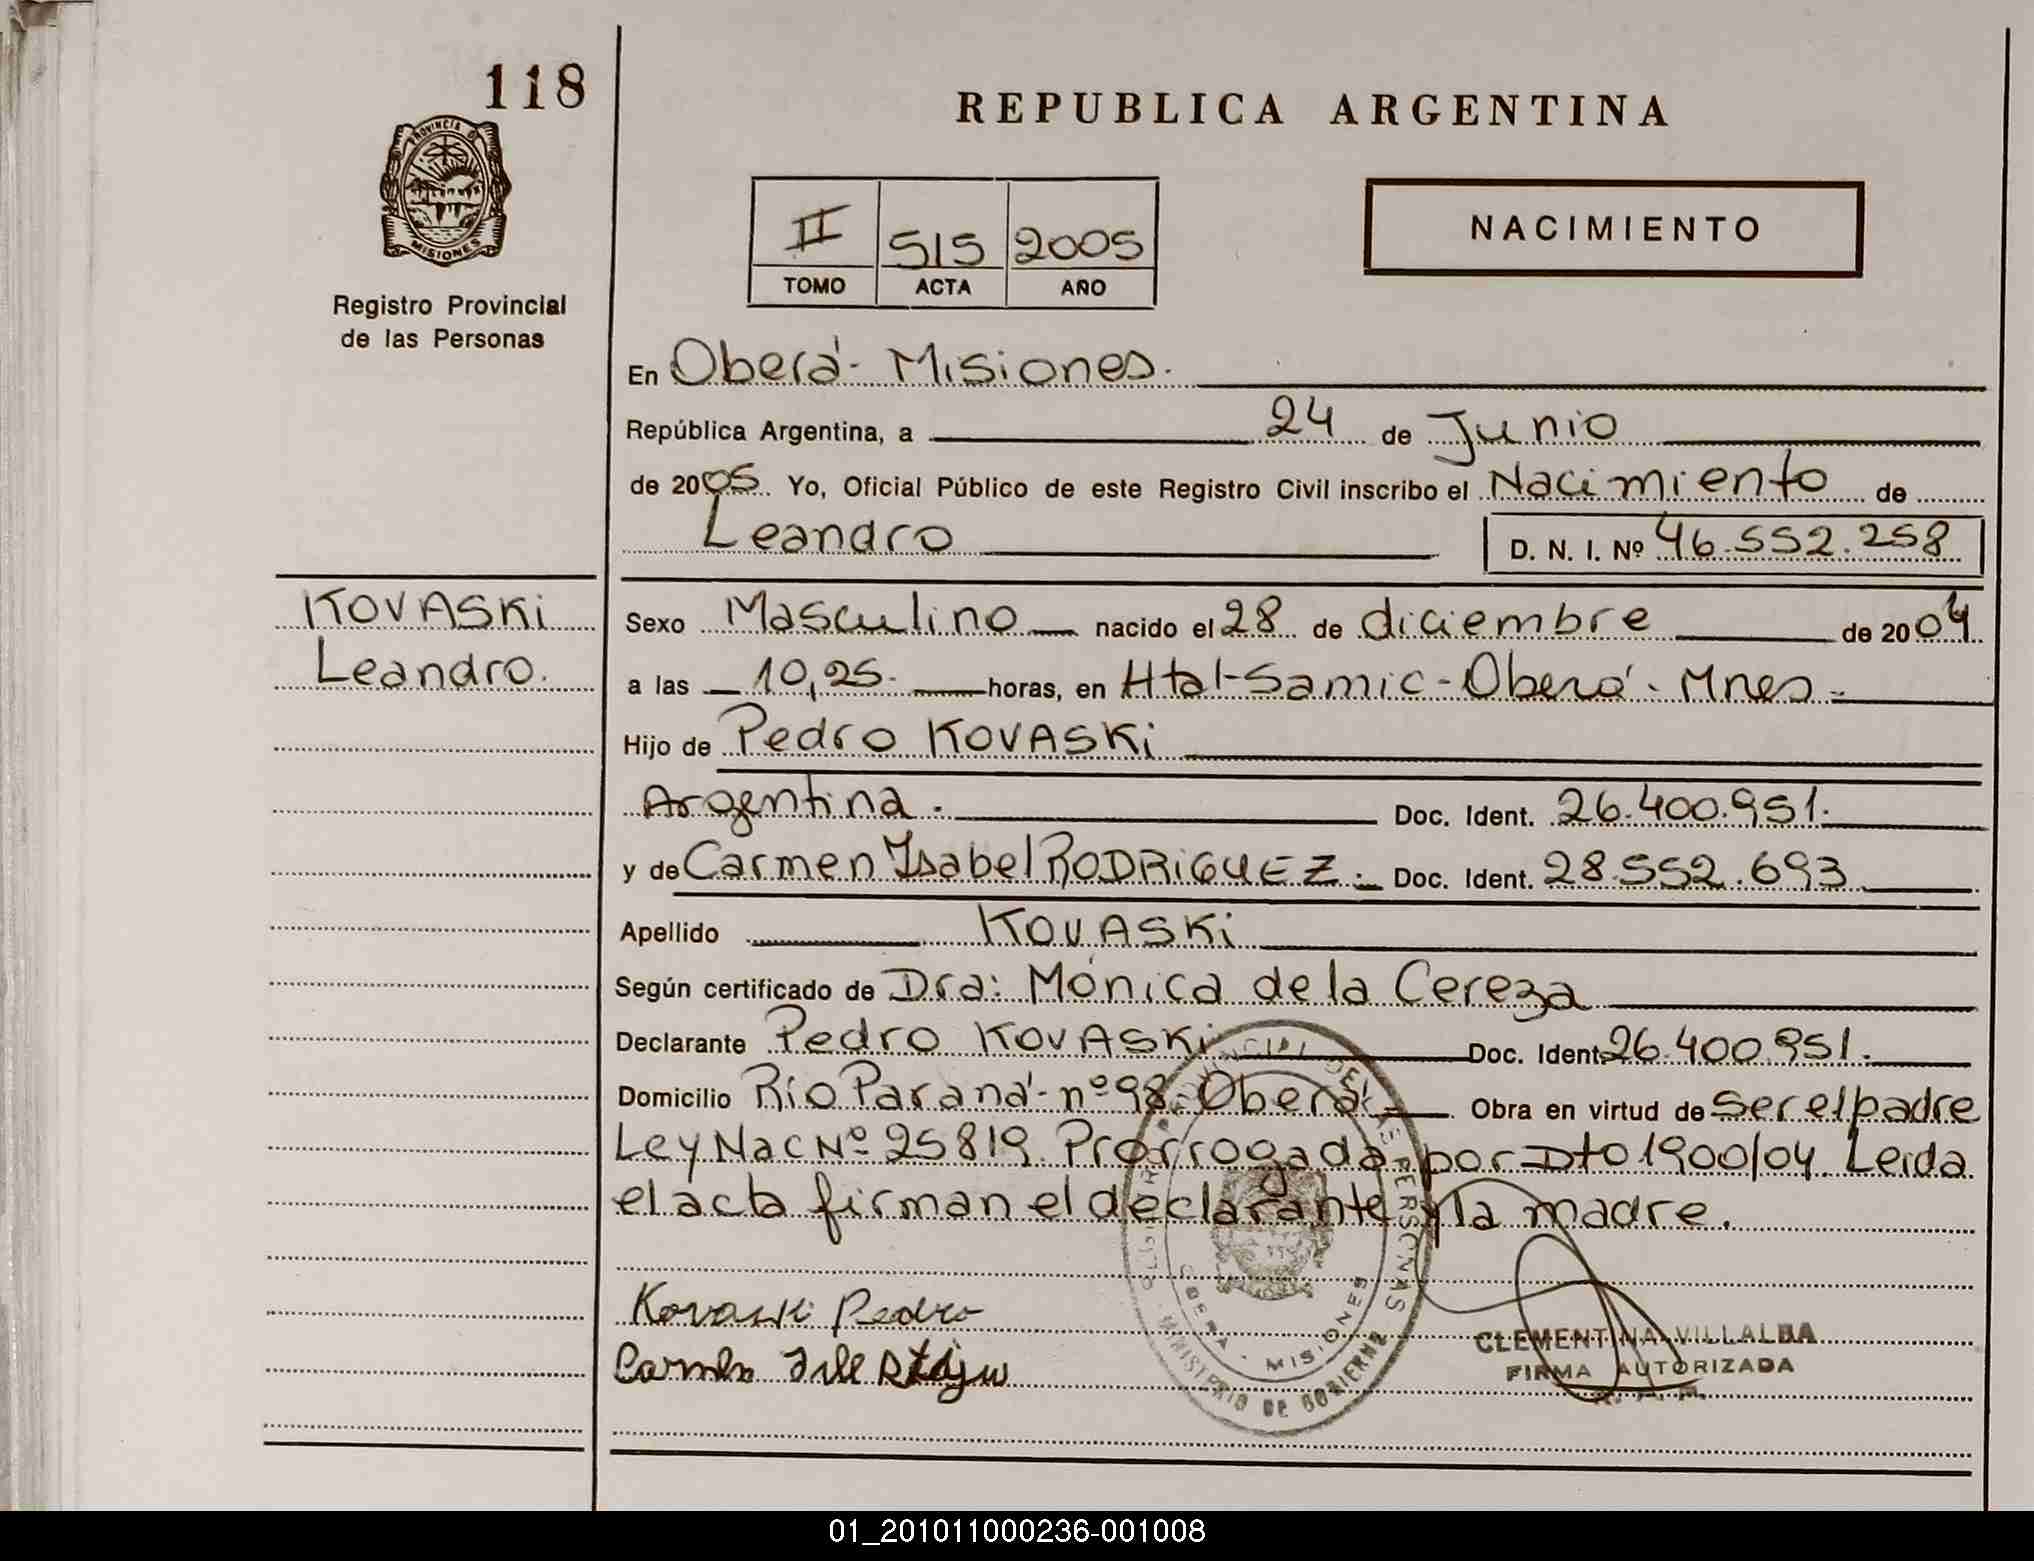 118
REPUBLICA ARGENTINA
PROVINCIA DE
MISIONES
Registro Provincial
de las Personas
II 515 2005
TOMO ACTA AÑO
NACIMIENTO
En Oberá - Misiones.
República Argentina, a 24 de Junio
de 2005. Yo, Oficial Público de este Registro Civil inscribo el Nacimiento de
Leandro D. N. I. Nº 46.552.258
KOVASKi
Leandro.
Sexo Masculino nacido el 28 de diciembre de 2004
a las 10,25. horas, en Htal-Samic-Oberá. Mnes-
Hijo de Pedro KOVASKi
Argentina. Doc. Ident. 26.400.951.
y de Carmen Ysabel RODRiGUEZ. Doc. Ident. 28.552.693
Apellido KOVASKi
Según certificado de Dra: Mónica de la Cereza
Declarante Pedro KOVASKi Doc. Ident. 26.400.951.
Domicilio Río Paraná - nº 98. Oberá. Obra en virtud de Ser el padre
Ley Nac Nº 25819. Prorrogada por Dto 1900/04. Leida
el acta firman el declarante y la madre.
Kovaski Pedro
Carmen
CLEMENTINA VILLALBA
FIRMA AUTORIZADA
DE LAS PERSONAS
MINISTERIO DE GOBIERNO
OBERA - MISIONES
01_201011000236-001008